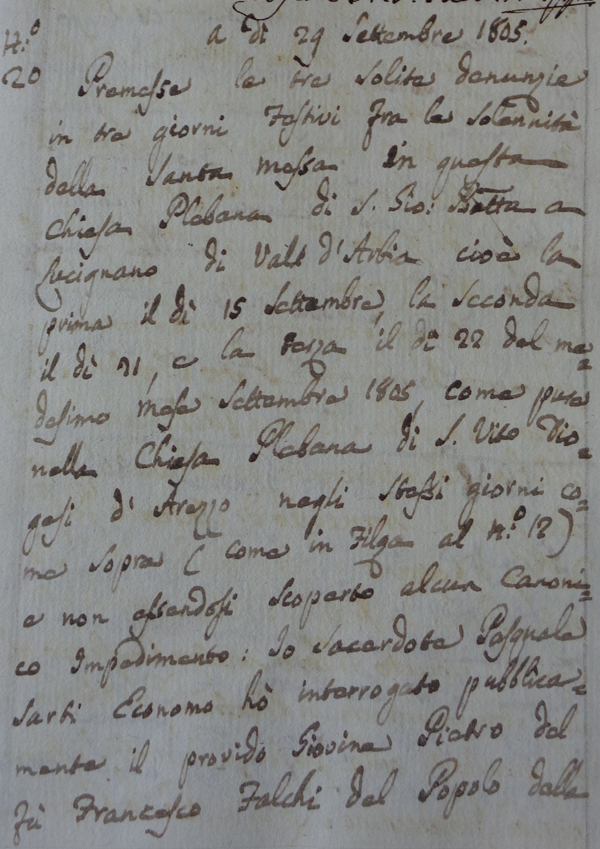 N.º
20
a dì 29 Settembre 1805.
Premesse le tre solite denunzie
in tre giorni Festivi fra le solennità
della Santa messa in questa
Chiesa Plebana di S. Gio: Batta a
Lucignano di Vall d'Arbia cioè la
prima il dì 15 Settembre, la seconda
il dì 21, e la terza il dì 22 del me=
desimo mese Settembre 1805, come pure
nella Chiesa Plebana di S. Vito Dio=
gesi d'Arezzo negli stessi giorni co=
me sopra (come in Filza al N.º 17)
e non essendosi scoperto alcun Canoni=
co Impedimento: Io Sacerdote Pasquale
Sarti Economo hò interrogato pubblica=
mente il provido Giovine Pietro del
fù Francesco Falchi del Popolo della